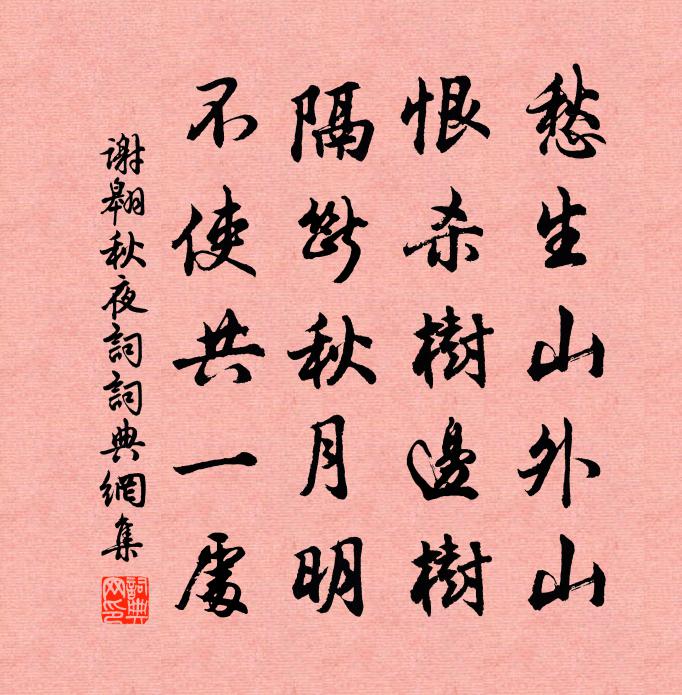 愁生山外山
恨杀樹邊樹
隔斷秋月明
不使共一處
謝翱秋夜詞詞典網集
詞典網印